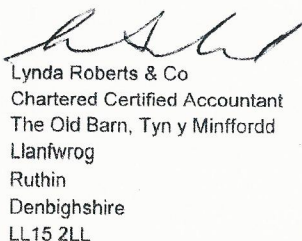 Lynda Roberts & Co
Chartered Certified Accountant
The Old Barn, Tyn y Minffordd
Llanfwrog
Ruthin
Denbighshire
LL15 2LL